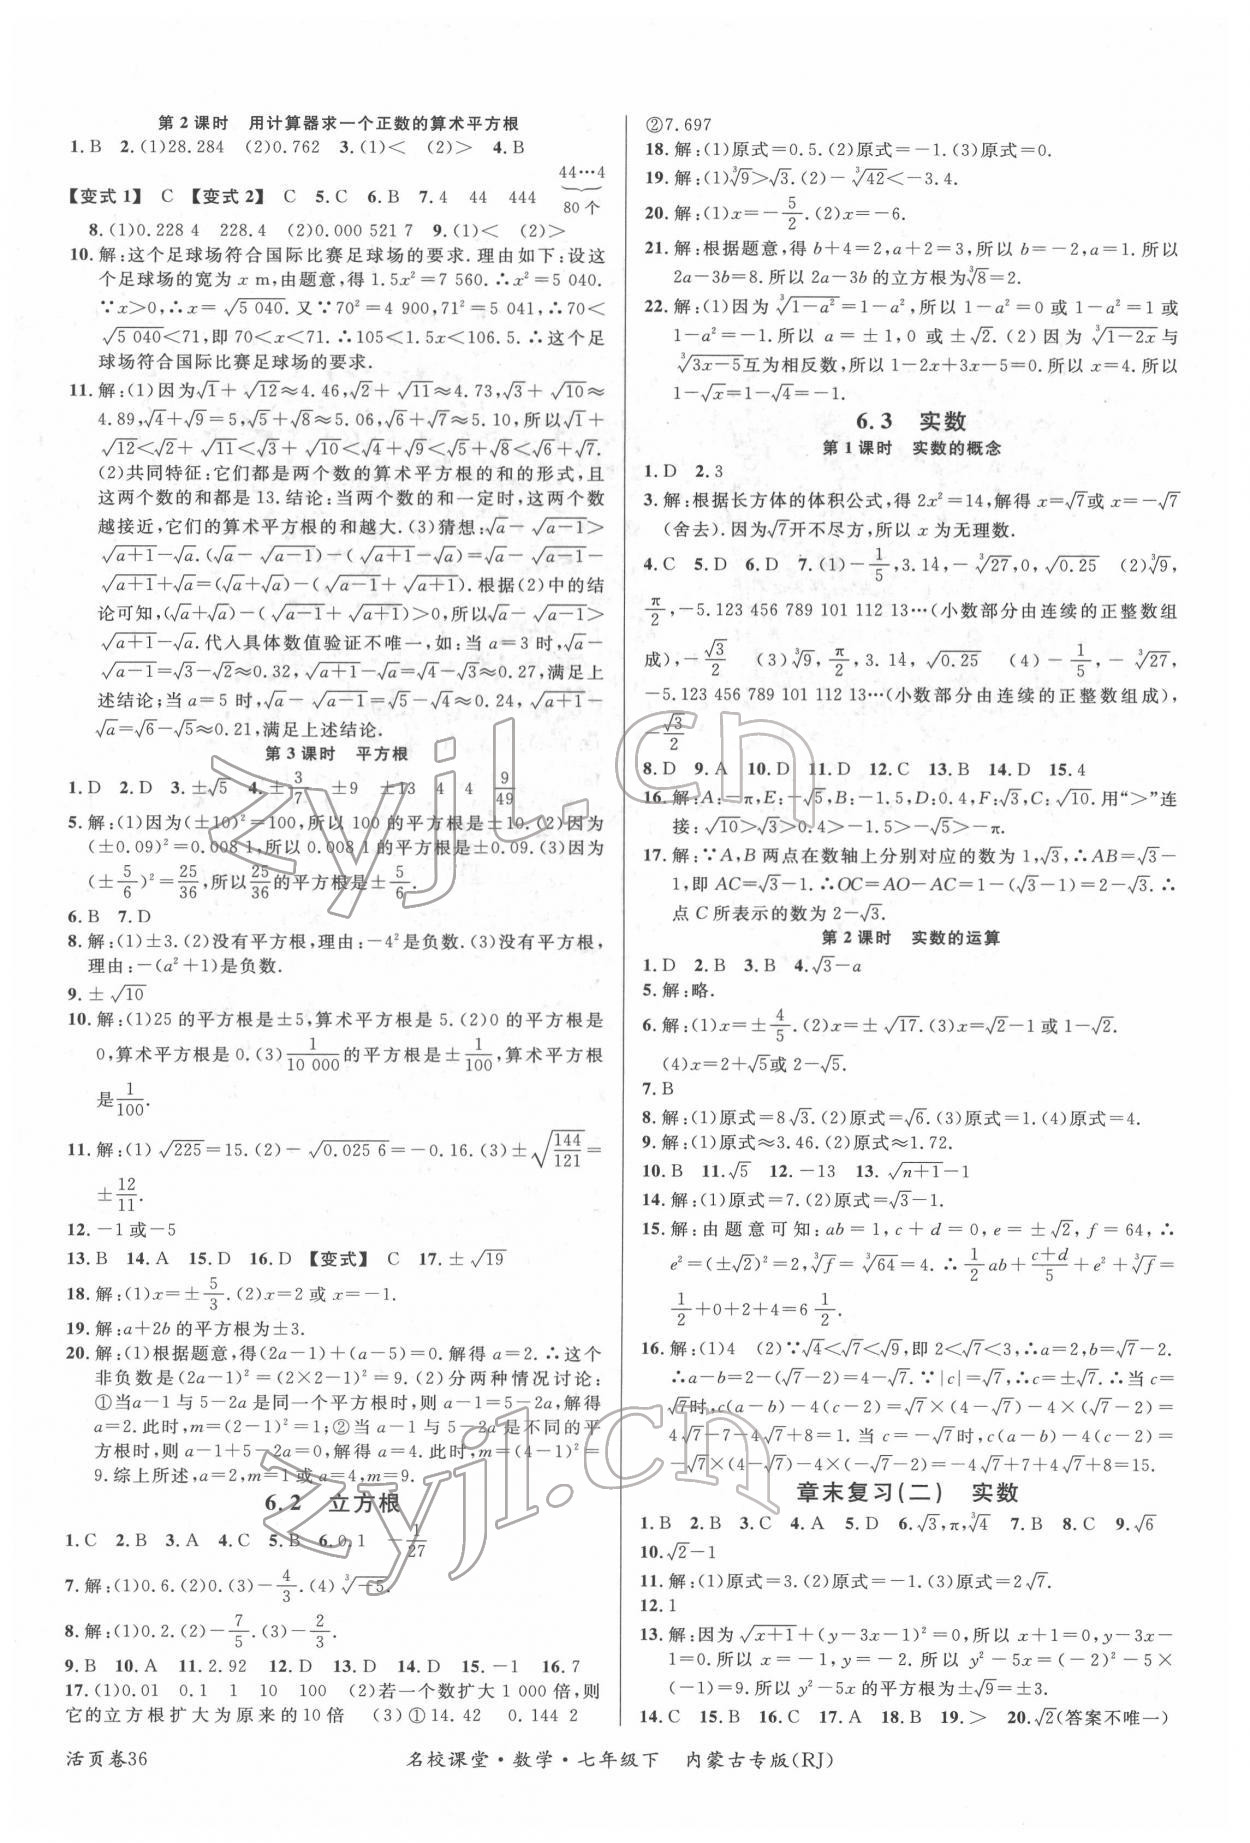 第2课时 用计算器求一个正数的算术平方根
1.B 2.(1)28.284 (2)0.762 3.(1)< (2)> 4.B
【变式1】 C 【变式2】 C 5.C 6.B 7.4 44 444 44…4(80个)
8.(1)0.228 4 228.4 (2)0.000 521 7 9.(1)< (2)>
10.解:这个足球场符合国际比赛足球场的要求.理由如下:设这
个足球场的宽为 x m,由题意,得 1.5x²=7 560.∴x²=5 040.
∵x>0,∴x=√5 040.又∵70²=4 900,71²=5 041,∴70<
√5 040<71,即 70<x<71.∴105<1.5x<106.5.∴这个足
球场符合国际比赛足球场的要求.
11.解:(1)因为√1+√12≈4.46,√2+√11≈4.73,√3+√10≈
4.89,√4+√9=5,√5+√8≈5.06,√6+√7≈5.10,所以√1+
√12<√2+√11<√3+√10<√4+√9<√5+√8<√6+√7.
(2)共同特征:它们都是两个数的算术平方根的和的形式,且
这两个数的和都是 13.结论:当两个数的和一定时,这两个数
越接近,它们的算术平方根的和越大.(3)猜想:√a-√(a-1)>
√(a+1)-√a.(√a-√(a-1))-(√(a+1)-√a)=√a-√(a-1)-
√(a+1)+√a=(√a+√a)-(√(a-1)+√(a+1)).根据(2)中的结
论可知,(√a+√a)-(√(a-1)+√(a+1))>0,所以√a-√(a-1)>
√(a+1)-√a.代入具体数值验证不唯一,如:当 a=3 时,√a-
√(a-1)=√3-√2≈0.32,√(a+1)-√a=√4-√3≈0.27,满足上
述结论;当 a=5 时,√a-√(a-1)=√5-√4≈0.24,√(a+1)-
√a=√6-√5≈0.21,满足上述结论.
第3课时 平方根
1.D 2.D 3.±√5 4.±3/7 ±9 ±13 4 4 9/49
5.解:(1)因为(±10)²=100,所以 100 的平方根是±10.(2)因为
(±0.09)²=0.008 1,所以 0.008 1 的平方根是±0.09.(3)因为
(±5/6)²=25/36,所以25/36的平方根是±5/6.
6.B 7.D
8.解:(1)±3.(2)没有平方根,理由:-4²是负数.(3)没有平方根,
理由:-(a²+1)是负数.
9.±√10
10.解:(1)25 的平方根是±5,算术平方根是 5.(2)0 的平方根是
0,算术平方根是 0.(3)1/10 000的平方根是±1/100,算术平方根
是1/100.
11.解:(1)√225=15.(2)-√0.025 6=-0.16.(3)±√(144/121)=
±12/11.
12.-1或-5
13.B 14.A 15.D 16.D 【变式】 C 17.±√19
18.解:(1)x=±5/3.(2)x=2 或 x=-1.
19.解:a+2b 的平方根为±3.
20.解:(1)根据题意,得(2a-1)+(a-5)=0.解得 a=2.∴这个
非负数是(2a-1)²=(2×2-1)²=9.(2)分两种情况讨论:
①当a-1 与 5-2a 是同一个平方根时,则 a-1=5-2a,解得
a=2.此时,m=(2-1)²=1;②当 a-1 与 5-2a 是不同的平
方根时,则 a-1+5-2a=0,解得 a=4.此时,m=(4-1)²=
9.综上所述,a=2,m=1 或 a=4,m=9.
6.2 立方根
1.C 2.B 3.A 4.C 5.B 6.0.1 -1/27
7.解:(1)0.6.(2)0.(3)-4/3.(4)∛-5.
8.解:(1)0.2.(2)-7/5.(3)-2/3.
9.B 10.A 11.2.92 12.D 13.D 14.D 15.-1 16.7
17.(1)0.01 0.1 1 10 100 (2)若一个数扩大 1 000 倍,则
它的立方根扩大为原来的 10 倍 (3)①14.42 0.144 2
②7.697
18.解:(1)原式=0.5.(2)原式=-1.(3)原式=0.
19.解:(1)∛9>√3.(2)-∛42<-3.4.
20.解:(1)x=-5/2.(2)x=-6.
21.解:根据题意,得 b+4=2,a+2=3,所以 b=-2,a=1.所以
2a-3b=8.所以 2a-3b 的立方根为∛8=2.
22.解:(1)因为 ∛(1-a²)=1-a²,所以 1-a²=0 或 1-a²=1 或
1-a²=-1.所以 a=±1,0 或±√2.(2)因为 ∛(1-2x)与
∛(3x-5)互为相反数,所以 1-2x+3x-5=0.所以 x=4.所以
1-√x=1-√4=-1.
6.3 实数
第1课时 实数的概念
1.D 2.3
3.解:根据长方体的体积公式,得 2x²=14,解得 x=√7或 x=-√7
(舍去).因为√7开不尽方,所以 x 为无理数.
4.C 5.D 6.D 7.(1)-1/5,3.14,-∛27,0,√0.25 (2)∛9,
π/2,-5.123 456 789 101 112 13…(小数部分由连续的正整数组
成),-√3/2 (3)∛9,π/2,3.14,√0.25 (4)-1/5,-∛27,
-5.123 456 789 101 112 13…(小数部分由连续的正整数组成),
-√3/2
8.D 9.A 10.D 11.D 12.C 13.B 14.D 15.4
16.解:A:-π,E:-√5,B:-1.5,D:0.4,F:√3,C:√10.用“>”连
接:√10>√3>0.4>-1.5>-√5>-π.
17.解:∵A,B 两点在数轴上分别对应的数为 1,√3,∴AB=√3-
1,即 AC=√3-1.∴OC=AO-AC=1-(√3-1)=2-√3.∴
点 C 所表示的数为 2-√3.
第2课时 实数的运算
1.D 2.B 3.B 4.√3-a
5.解:略.
6.解:(1)x=±4/5.(2)x=±√17.(3)x=√2-1 或 1-√2.
(4)x=2+√5或 2-√5.
7.B
8.解:(1)原式=8√3.(2)原式=√6.(3)原式=1.(4)原式=4.
9.解:(1)原式≈3.46.(2)原式≈1.72.
10.B 11.√5 12.-13 13.√(n+1)-1
14.解:(1)原式=7.(2)原式=√3-1.
15.解:由题意可知:ab=1,c+d=0,e=±√2,f=64,∴
e²=(±√2)²=2,∛f=∛64=4.∴1/2ab+(c+d)/5+e²+∛f=
1/2+0+2+4=6 1/2.
16.解:(1)4 (2)∵√4<√7<√9,即 2<√7<3,∴a=2,b=√7-2.
∴a-b=2-(√7-2)=4-√7.∵|c|=√7,∴c=±√7.∴当 c=
√7时,c(a-b)-4(c-2)=√7×(4-√7)-4×(√7-2)=
4√7-7-4√7+8=1.当 c=-√7时,c(a-b)-4(c-2)=
-√7×(4-√7)-4×(-√7-2)=-4√7+7+4√7+8=15.
章末复习(二) 实数
1.B 2.B 3.C 4.A 5.D 6.√3,π,∛4 7.B 8.C 9.√6
10.√2-1
11.解:(1)原式=3.(2)原式=-1.(3)原式=2√7.
12.1
13.解:因为√(x+1)+(y-3x-1)²=0,所以 x+1=0,y-3x-
1=0.所以 x=-1,y=-2.所以 y²-5x=(-2)²-5×
(-1)=9.所以 y²-5x 的平方根为±√9=±3.
14.C 15.C 16.B 17.B 18.2 19.> 20.√2(答案不唯一)
活页卷36 名校课堂·数学·七年级下 内蒙古专版(RJ)
zyjl.cn
zyjl.cn